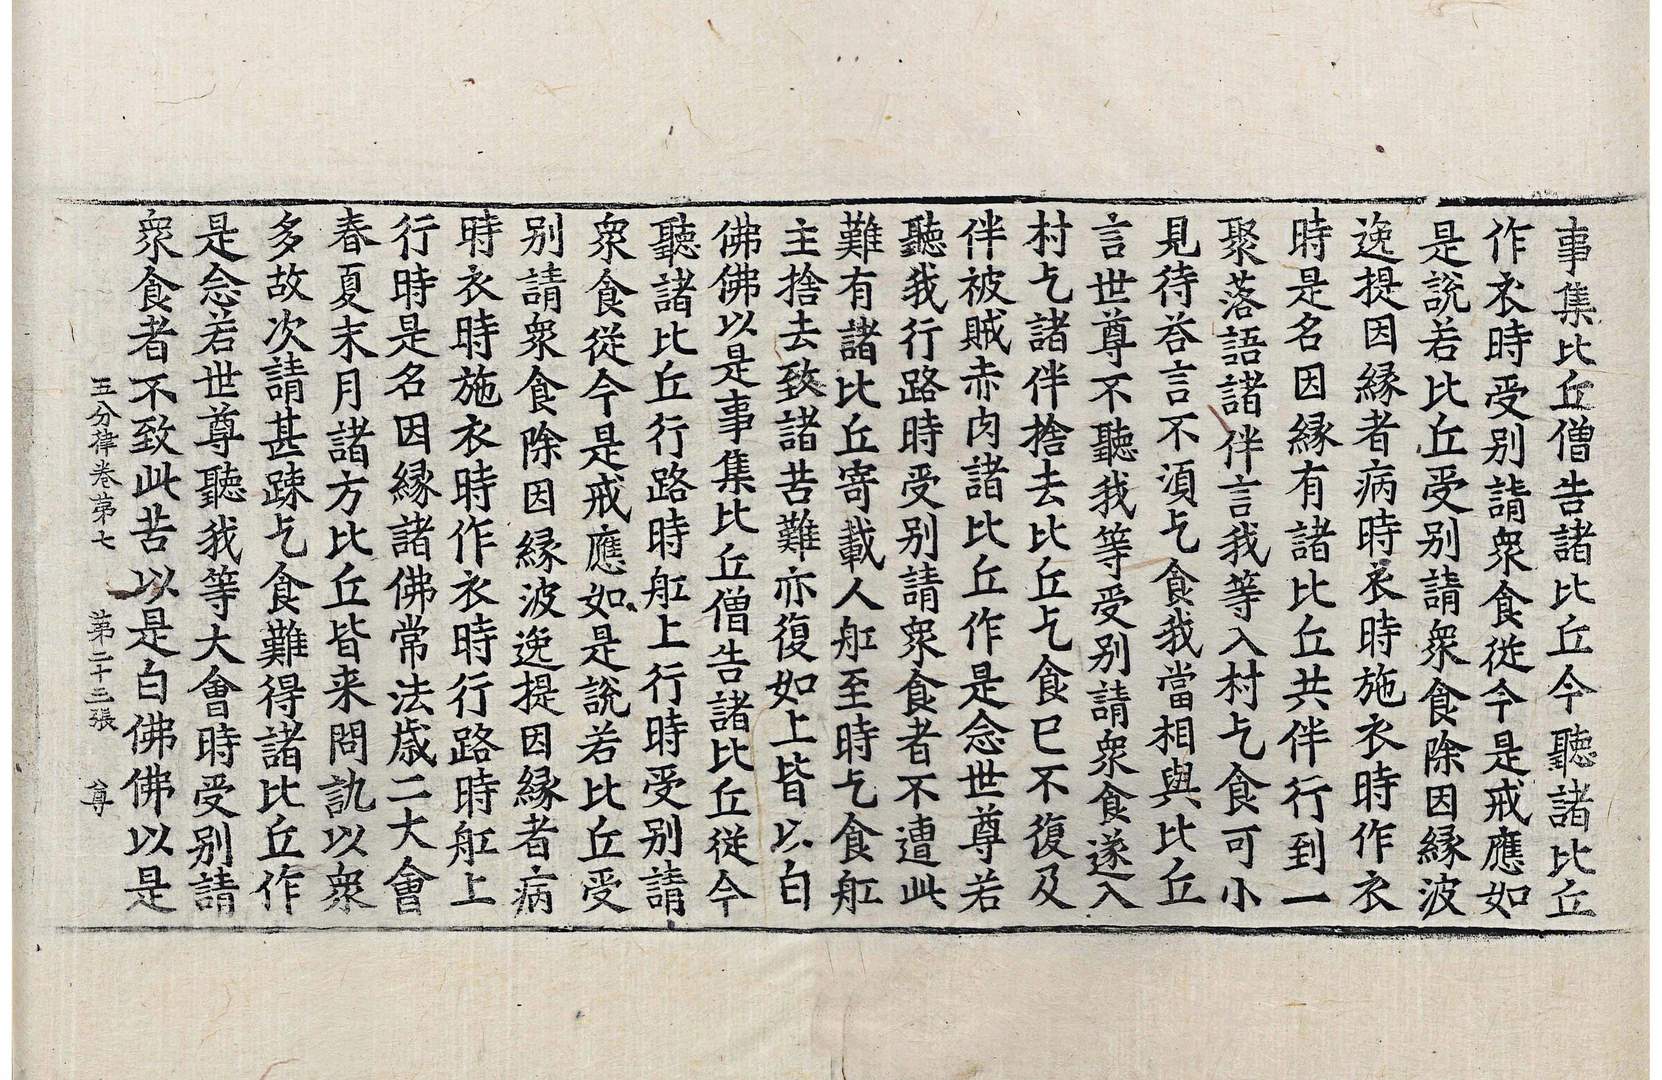 事集比丘僧告諸比丘今聽諸比丘
作衣時受别請衆食從今是戒應如
是說若比丘受别請衆食除因緣波
逸提因緣者病時衣時施衣時作衣
時是名因緣有諸比丘共伴行到一
聚落語諸伴言我等入村乞食可小
見待答言不湏乞食我當相與比丘
言世尊不聽我等受别請衆食遂入
村乞諸伴捨去比丘乞食已不復及
伴被賊赤肉諸比丘作是念世尊若
聽我行路時受别請衆食者不遭此
難有諸比丘寄載人舡至時乞食舡
主捨去致諸苦難亦復如上皆以白
佛佛以是事集比丘僧告諸比丘從今
聽諸比丘行路時舡上行時受别請
衆食從今是戒應如是說若比丘受
别請衆食除因緣波逸提因緣者病
時衣時施衣時作衣時行路時舡上
行時是名因緣諸佛常法歳二大會
春夏末月諸方比丘皆来問訊以衆
多故次請甚踈乞食難得諸比丘作
是念若世尊聽我等大會時受别請
衆食者不致此苦以是白佛佛以是
五分律卷苐七 苐二十三張 尊